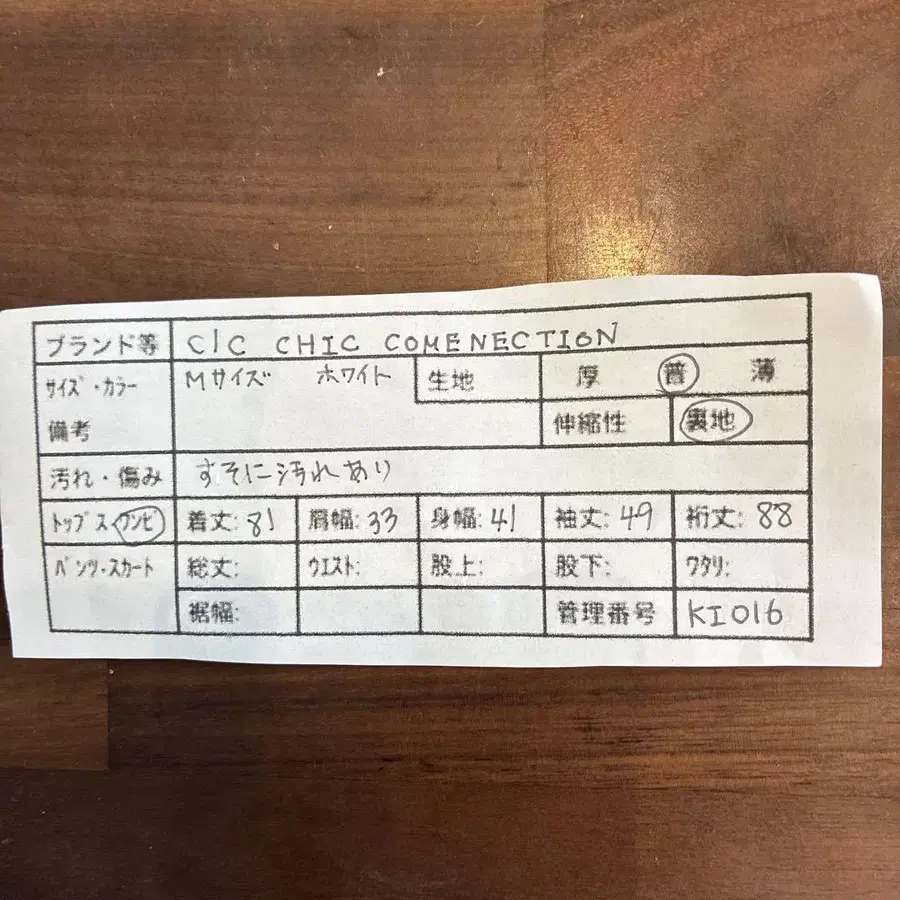 ブランド等 C/C CHIC COMENECTION
サイズ・カラー Mサイズ ホワイト 生地 厚 普 薄
備考 伸縮性 裏地
汚れ・傷み すそに汚れあり
トップス・ワンピ 着丈: 81 肩幅: 33 身幅: 41 袖丈: 49 裄丈: 88
パンツ・スカート 総丈: ウエスト: 股上: 股下: ワタリ:
裾幅: 管理番号 KI016